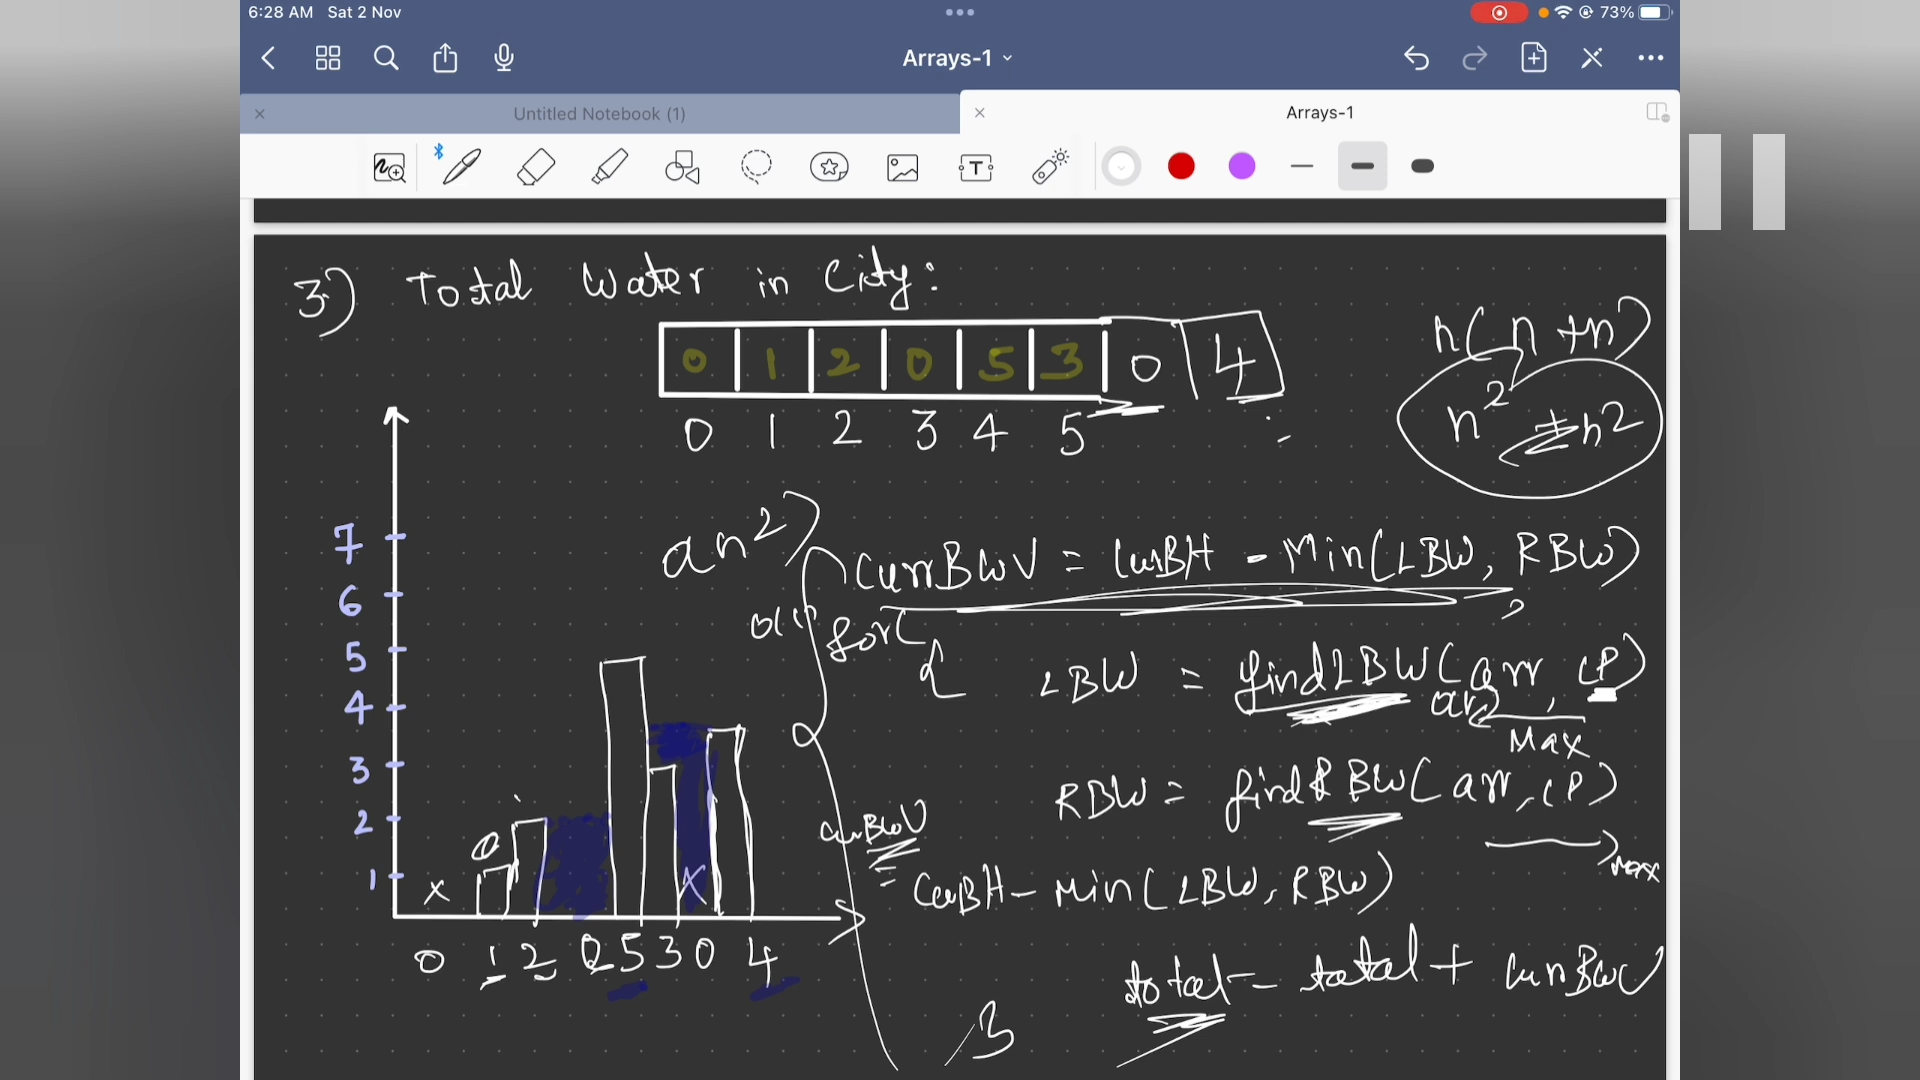 6:28 AM Sat 2 Nov
73%
Arrays-1
Untitled Notebook (1)
Arrays-1
3) Total Water in City:
0 1 2 0 5 3 0 4
0 1 2 3 4 5
n(n+n)
n² + n²
7
6
5
4
3
2
1
x
0
x
0 1 2 0 5 3 0 4
CurrBWV = CurBH - Min(LBW, RBW)
for(
{
LBW = findLBW(arr, CP)
Max
RBW = findRBW(arr, CP)
Max
curBWV
= CurBH - Min(LBW, RBW)
total = total + curBWV
}